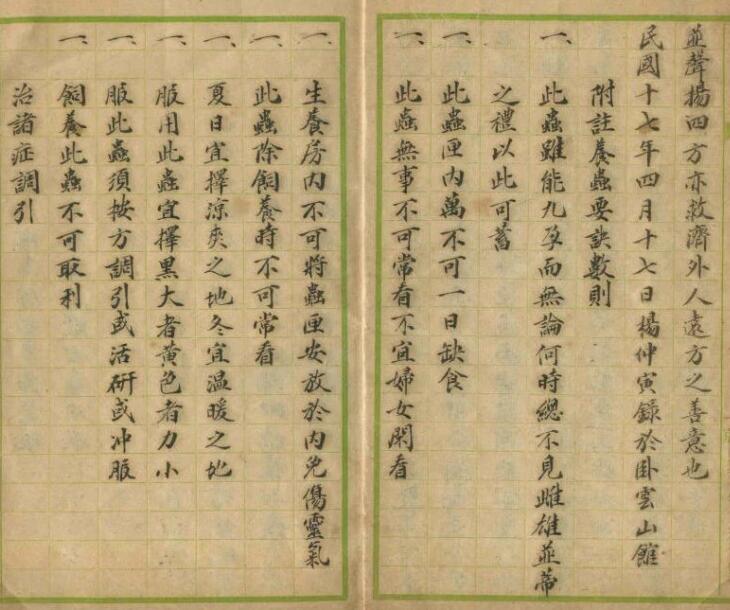 並聲揚四方亦救濟外人遠方之善意也
民國十七年四月十七日楊仲寅錄於卦雲山館
附註養蟲要訣數則
一、此蟲雖能九孕而無論何時總不見雌雄並蒂
之禮以此可蓄
一、此蟲匣內萬不可一日缺食
一、此蟲無事不可常看不宜婦女閑看
一、生養房內不可將蟲匣安放於內免傷靈氣
一、此蟲除飼養時不可常看
一、夏日宜擇涼爽之地冬宜溫暖之地
一、服用此蟲宜擇黑大者黃色者力小
一、服此蟲須按方調引或活研或冲服
一、飼養此蟲不可取利
治諸症調引